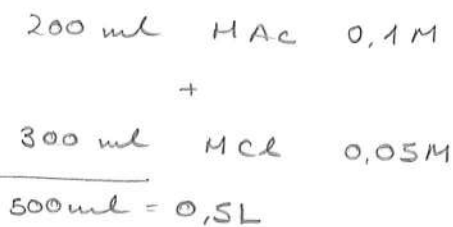 200 ml HAc 0,1M
+
300 ml HCl 0,05M
500ml = 0,5L